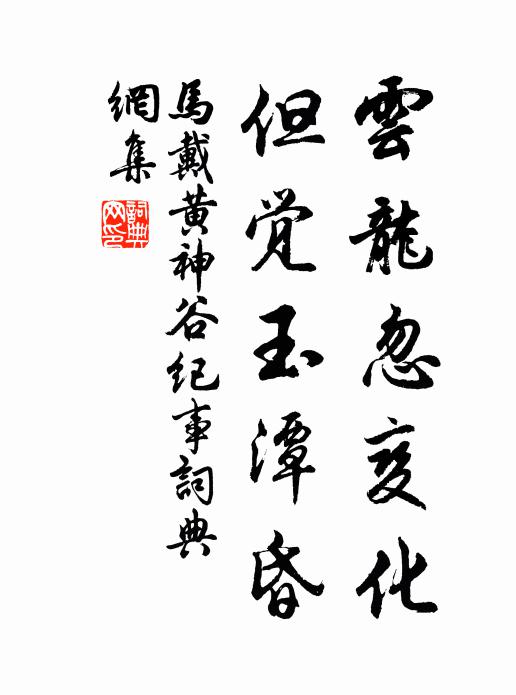 雲龍忽变化
但覚玉潭昏
馬戴黄神谷纪事詞典
網集
詞典網印